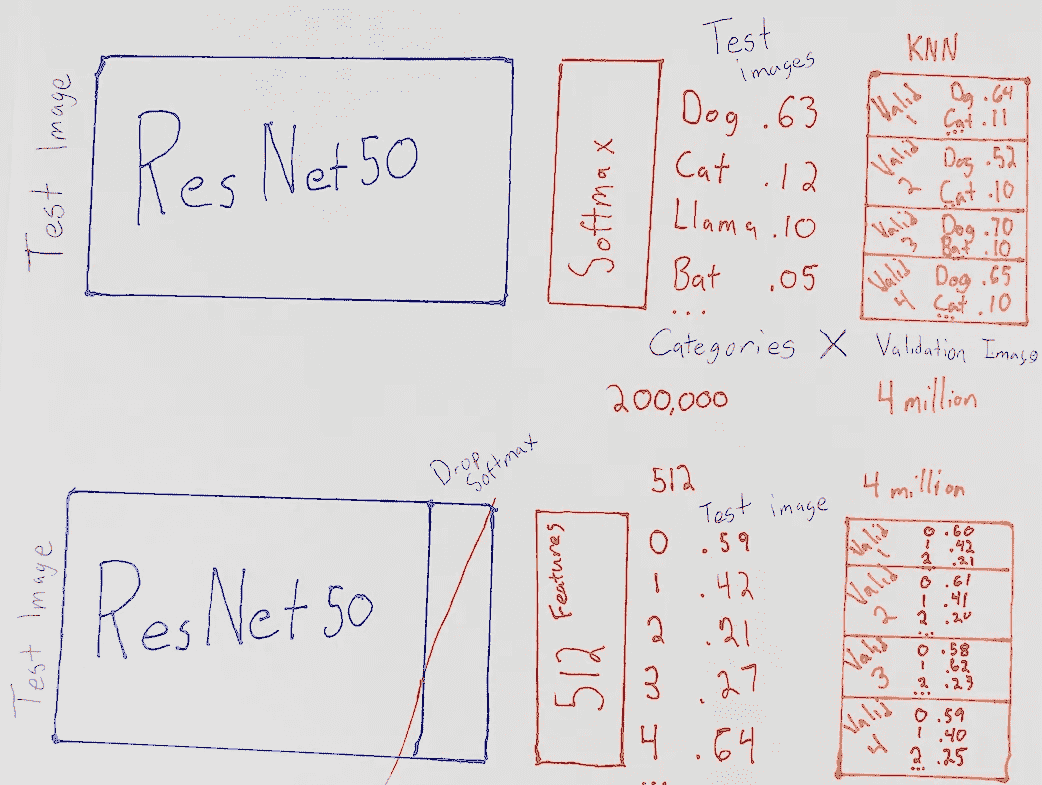 Test Image
ResNet50
Softmax
Test
images
Dog .63
Cat .12
Llama .10
Bat .05
...
KNN
Valid
1
Dog .64
Cat .11
...
Valid
2
Dog .52
Cat .10
...
Valid
3
Dog .70
Bat .10
...
Valid
4
Dog .65
Cat .10
...
Categories X Validation Image
200,000 4 million
Test Image
ResNet50
Drop
Softmax
512 Features
512
Test image
0 .59
1 .42
2 .21
3 .27
4 .64
...
4 million
Valid
1
0 .60
1 .42
2 .21
Valid
2
0 .61
1 .41
2 .20
...
Valid
3
0 .58
1 .62
2 .23
...
Valid
4
0 .59
1 .40
2 .25
...